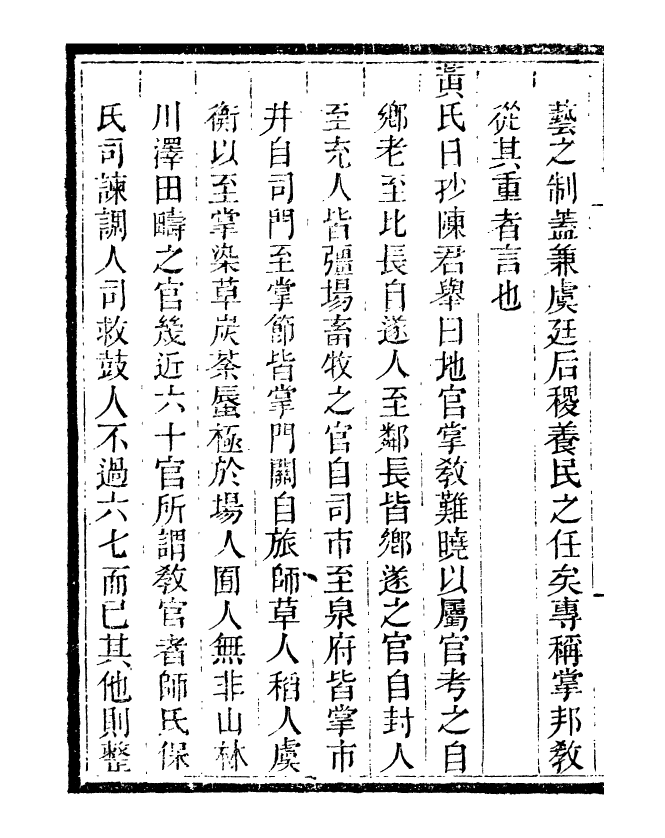 藝之制蓋兼虞廷后稷養民之任矣專稱掌邦教
從其重者言也
黃氏日抄陳君舉曰地官掌教難曉以屬官考之自
鄉老至比長自遂人至鄰長皆鄉遂之官自封人
至充人皆疆場畜牧之官自司市至泉府皆掌市
井自司門至掌節皆掌門關自旅師草人稻人虞
衡以至掌染草炭荼蜃極於場人囿人無非山林
川澤田疇之官幾近六十官所謂教官者師氏保
氏司諫調人司救鼓人不過六七而已其他則整